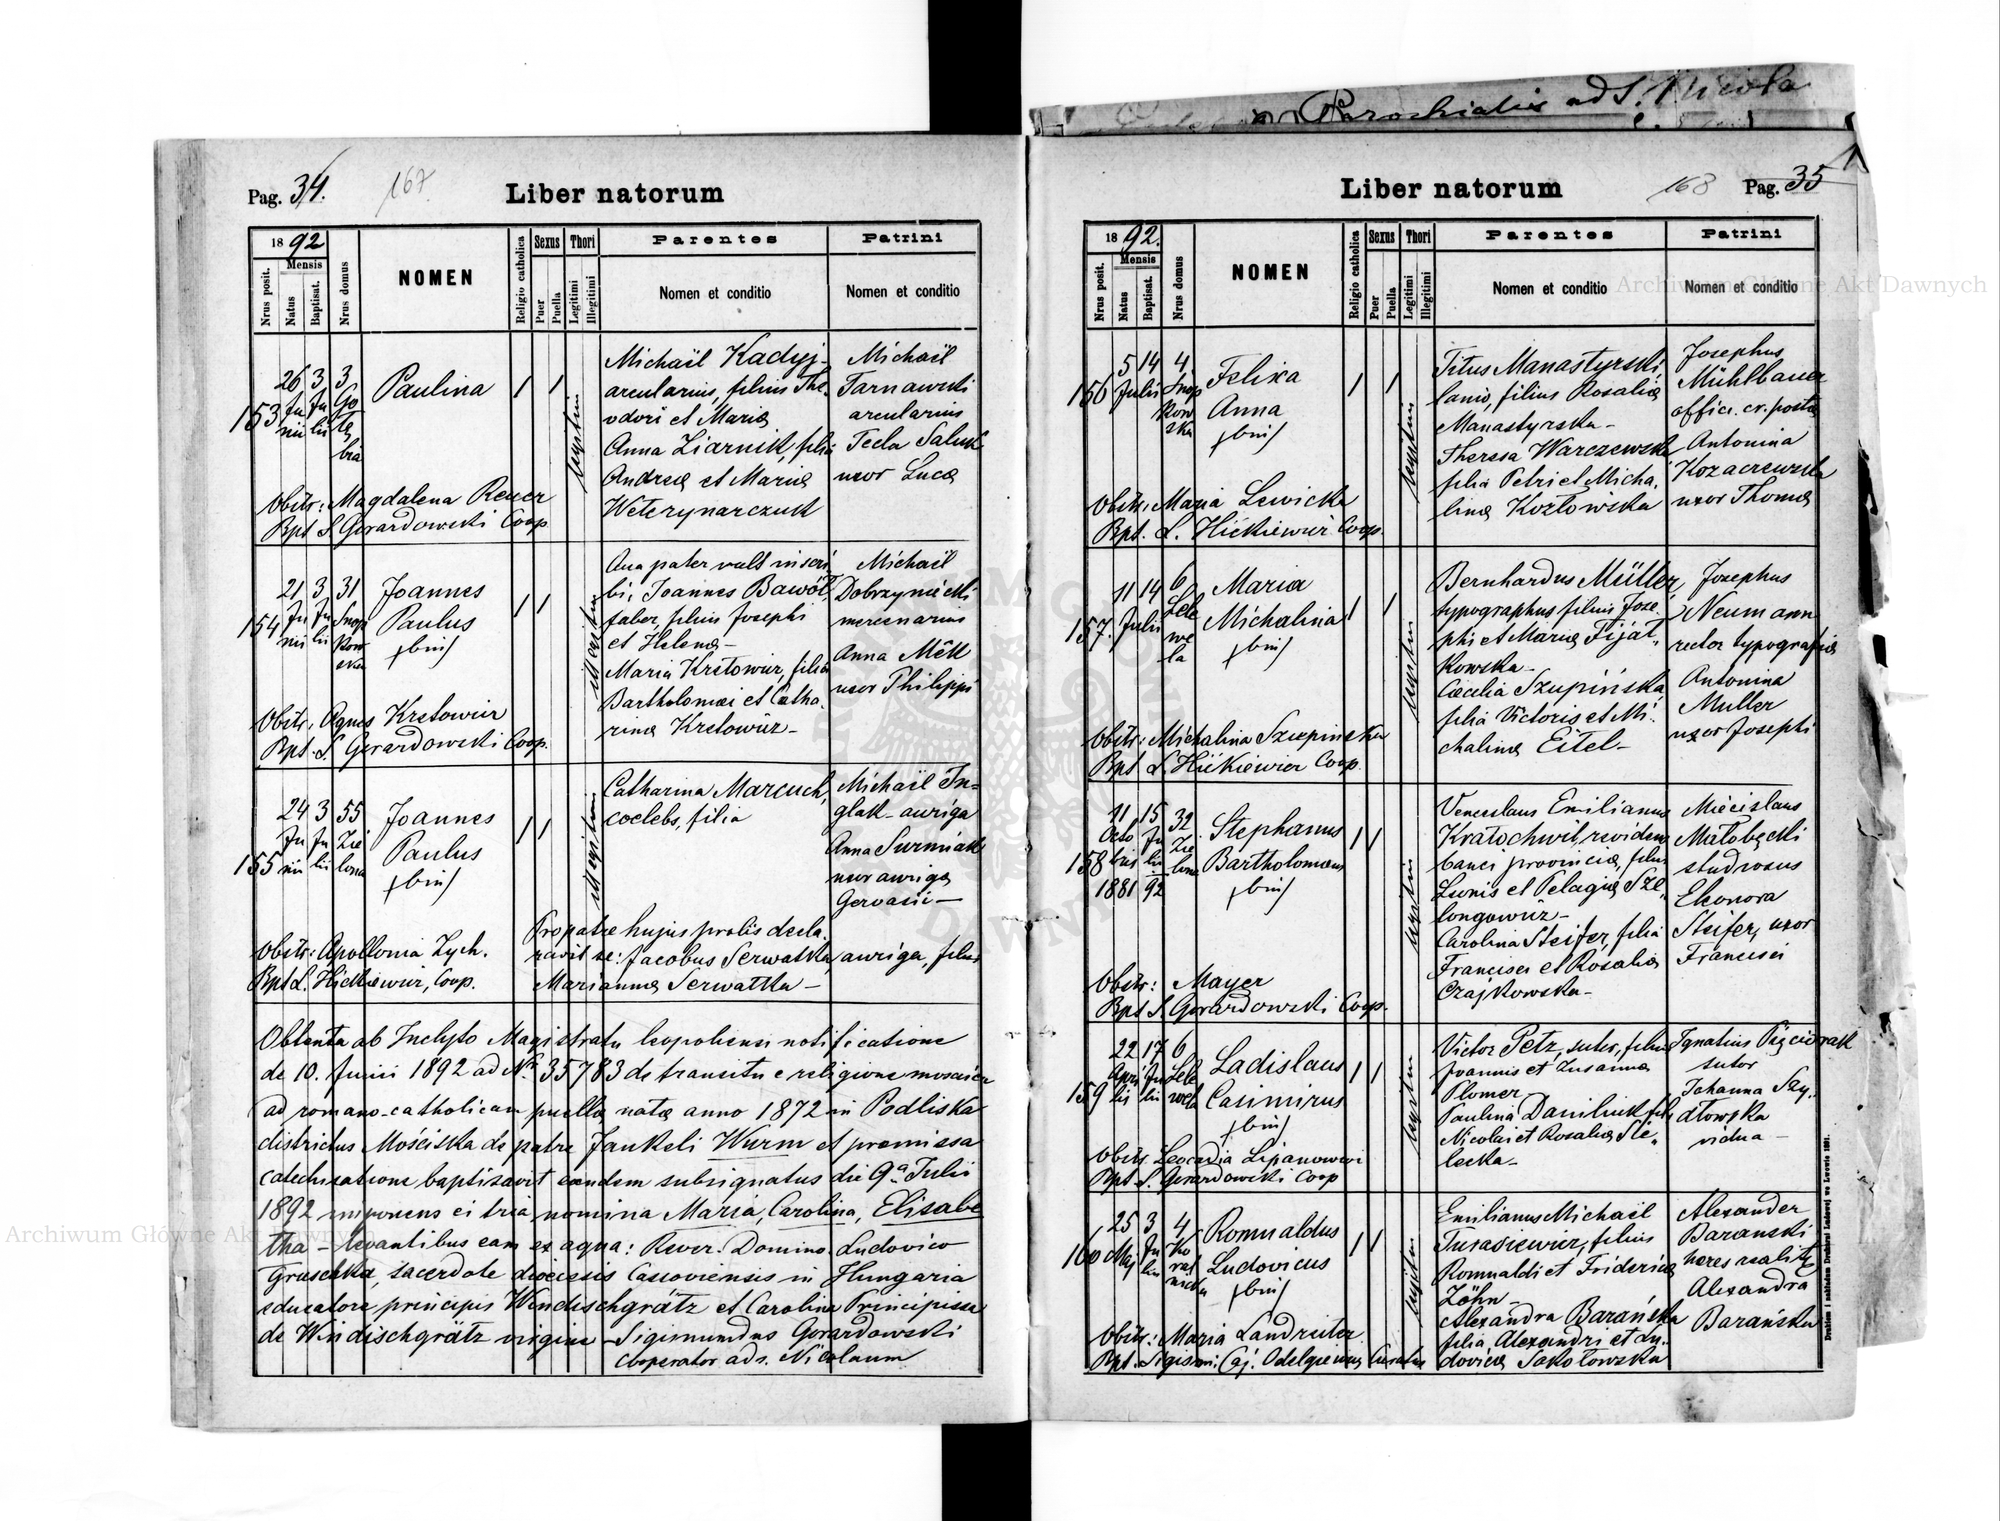 Parochialis ad S. Nicola
Pag. 34.
167.
Liber natorum
1892
Mensis
Nrus posit.
Natus
Baptisat.
Nrus domus
NOMEN
Religio catholica
Sexus
Puer
Puella
Thori
Legitimi
Illegitimi
Parentes
Nomen et conditio
Patrini
Nomen et conditio
153
26 Junii
3 Julii
3 Gołębia
Paulina
1 1
legitim
Michaël Kadyj
arcularius, filius The
odori et Mariæ
Anna Ziarnik, filia
Andreæ et Mariæ
Weterynarczuk
Michaël
Tarnawski
arcularius
Tecla Saluk
uxor Lucæ
Obstr: Magdalena Reuer
Bpt S. Gorardowski Coop
154
21 Junii
3 Julii
31 Snopkowska
Joannes
Paulus
(bin)
1 1
illegitim
Qua pater vult inscri
bi, Joannes Bawół,
faber, filius Josephi
et Helenæ
Maria Kretowicz, filia
Bartholomæi et Catha
rinæ Kretowicz
Michaël
Dobrzyniecki
mercenarius
Anna Mêk
uxor Philippi
Obstr. Agnes Kretowicz
Bpt. S. Gorardowski Coop.
155
24 Junii
3 Julii
55 Zielona
Joannes
Paulus
(bin)
1 1
illegitim
Catharina Marcuch,
coelebs, filia
Michaël In=
glak auriga
Anna Surmiak
uxor aurigæ
Gervasii
Pro patre hujus prolis decla
ravit se: Jacobus Serwatka, auriga, filius
Mariannæ Serwatka
Obstr: Apollonia Zych.
Bpt L. Hićkiewicz, Coop.
Obtenta ab Inclyto Magistratu leopoliensi notificatione
de 10. Junii 1892 ad Nr 35783 de transitu e religione mosaica
ad romano-catholicam puellæ natæ anno 1872 in Podliska
districtus Mościska de patre Jankeli Wurm et præmissa
catechisatione baptisavit eandem subsignatus die 9ª Julii
1892 imponens ei tria nomina Maria, Carolina, Elisabe
tha – levantibus eam ex aqua: Rever. Domino Ludovico
Gruschka, sacerdote dioecesis Cassoviensis in Hungaria
educatore principis Windischgrätz et Carolina Principissa
de Windischgrätz virgine – Sigismundus Gorardowski
cooperator ad s. Nicolaum
Liber natorum
168
Pag. 35
1892.
Mensis
Nrus posit.
Natus
Baptisat.
Nrus domus
NOMEN
Religio catholica
Sexus
Puer
Puella
Thori
Legitimi
Illegitimi
Parentes
Nomen et conditio
Patrini
Nomen et conditio
156
5 Julii
14
4 Snopkowska
Felixa
Anna
(bin)
1 1
legitim
Titus Manastyrski,
lanio, filius Rosaliæ
Manastyrska
Theresa Warczewska
filia Petri et Micha
linæ Kozłowska
Josephus
Mühlbauer
offic. cr. postæ
Antonina
Kozaczewska
uxor Thomæ
Obstr: Maria Lewicka
Bpt. L. Hićkiewicz Coop.
157.
11 Julii
14
6 Lelewela
Maria
Michalina
(bin)
1 1
legitim
Bernhardus Müller
typographus filius Jose
phi et Mariæ Fijał
kowska
Cæcilia Szupińska
filia Victoris et Mi
chalinæ Eitel
Josephus
Neumann
rector typografiæ
Antonina
Muller
uxor Josephi
Obstr: Michalina Szupinska
Bpt L. Hićkiewicz Coop.
158
11 Octobris 1881
15 Julii 92
32 Zielona
Stephanus
Bartholomæus
(bin)
1 1
legitim
Venceslaus Emilianus
Kratochwil, revidens
banci provinciæ, filius
Leonis et Pelagiæ Sze
longowicz
Carolina Steifer, filia
Francisci et Rosaliæ
Czajkowska
Miecislaus
Małobęcki
studiosus
Eleonora
Steifer, uxor
Francisci
Obstr: Mayer
Bpt S Gorardowski Coop.
159
22 Aprilis
17 Julii
6 Lelewela
Ladislaus
Casimirus
(bin)
1 1
legitim
Victor Petz, sutor, filius
Joannis et Zusannæ
Plomer
Paulina Daniluk filia
Nicolai et Rosaliæ Sie
lecka
Ignatius Pięciorak
sutor
Johanna Szy
dłowska
vidua
Obstr. Leocadia Lipanowicz
Bpt. S. Gorardowski Coop
160
25 Maj
3 Julii
4 Kochanowska
Romualdus
Ludovicus
(bin)
1 1
legitim
Emilianus Michaël
Turasiewicz, filius
Romualdi et Fridericæ
Zöhn
Alexandra Barańska
filia Alexandri et Lu
dovicæ Sokołowska
Alexander
Baranski
heres realit
Alexandra
Barańska
Obstr: Maria Landreiter
Drukiem i nakładem Drukarni Ludowej we Lwowie 1891.
Archiwum Główne Akt Dawnych
Archiwum Główne Akt Dawnych